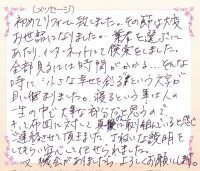 (メッセージ)
初めてリフォーム致しました。その節は大変
お世話になりました。業者を選ぶに
あたり、インターネットにて検索をしました。
全部見るには時間がかかる…。そんな
時に、小さな幸せを創るという文字が
目に留まりました。寝るという事は人
生の中で大事な部分だと思うので
それに布団に対して真剣に取り組んでいると感じ
連絡させて頂きました。ていねいな説明を
してもらい安心してまかせられました。
機会がありましたら、よろしくお願いします。